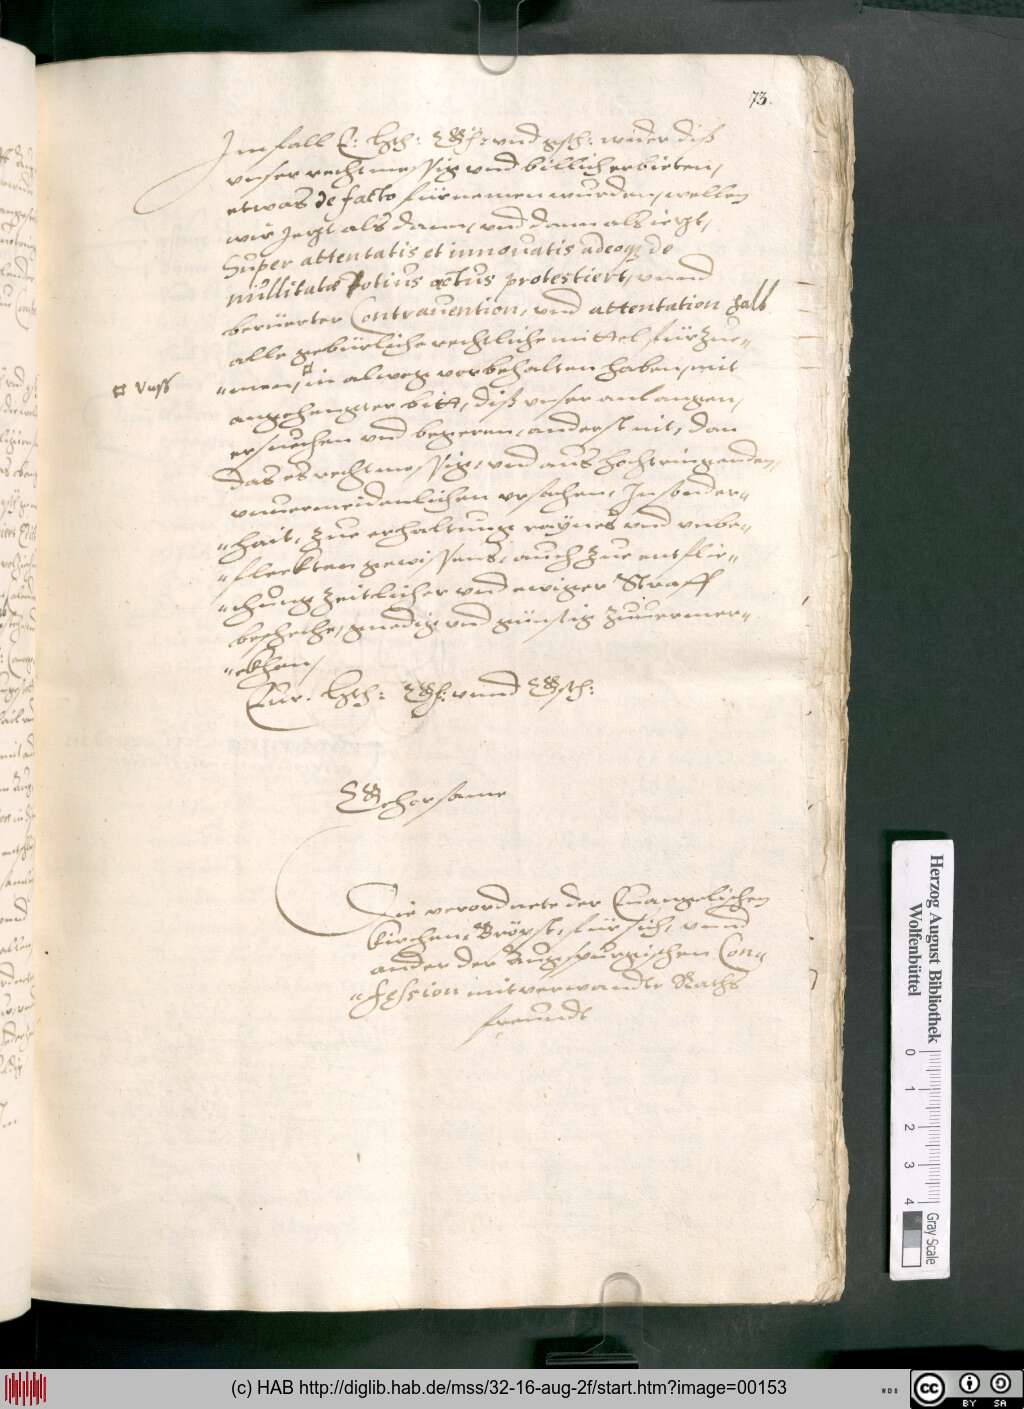 73.
Im fall E: Hrh: Gf: vnd gst: wider diß
vnser rechtmessig vnd billich erbieten,
etwas de facto fürnemen wurden, wellen
wir Jetzt als dann, vnd dann als ietzt,
Super attentatis et innouatis adeoq; de
nullitate potius actus protestiert, vnnd
berüerter Contrauention, vnd attentation halb
alle gebürliche rechtliche mittel fürzue-
¤ Vnß
-men, ¤ in alweg vorbehalten haben, mit
angehengter bitt, diß vnser anlangen,
ersuechen vnd begeren, anderst nit, dan
das es rechtmessig, vnd aus hochtringenden,
vnuermeidenlichen vrsachen, Insonder-
-hait, zue erhaltung raynes vnd vnbe-
-fleckten gewissens, auch zue entflie-
-chung zeitlicher vnd ewiger Straff
beschehe, gnedig vnd günstig zuuermer-
-ckhen,
Eur. Hrh: Gf: vnnd Gst:
Gehorsame
Die verordnete der Euangelischen
Kirchen Pröpst, für sich, vnnd
ander der Augspurgischen Con-
-fession mitverwandte Raths
freundt
Herzog August Bibliothek
Wolfenbüttel
0 1 2 3 4
Gray Scale
(c) HAB http://diglib.hab.de/mss/32-16-aug-2f/start.htm?image=00153
WDB
cc BY SA